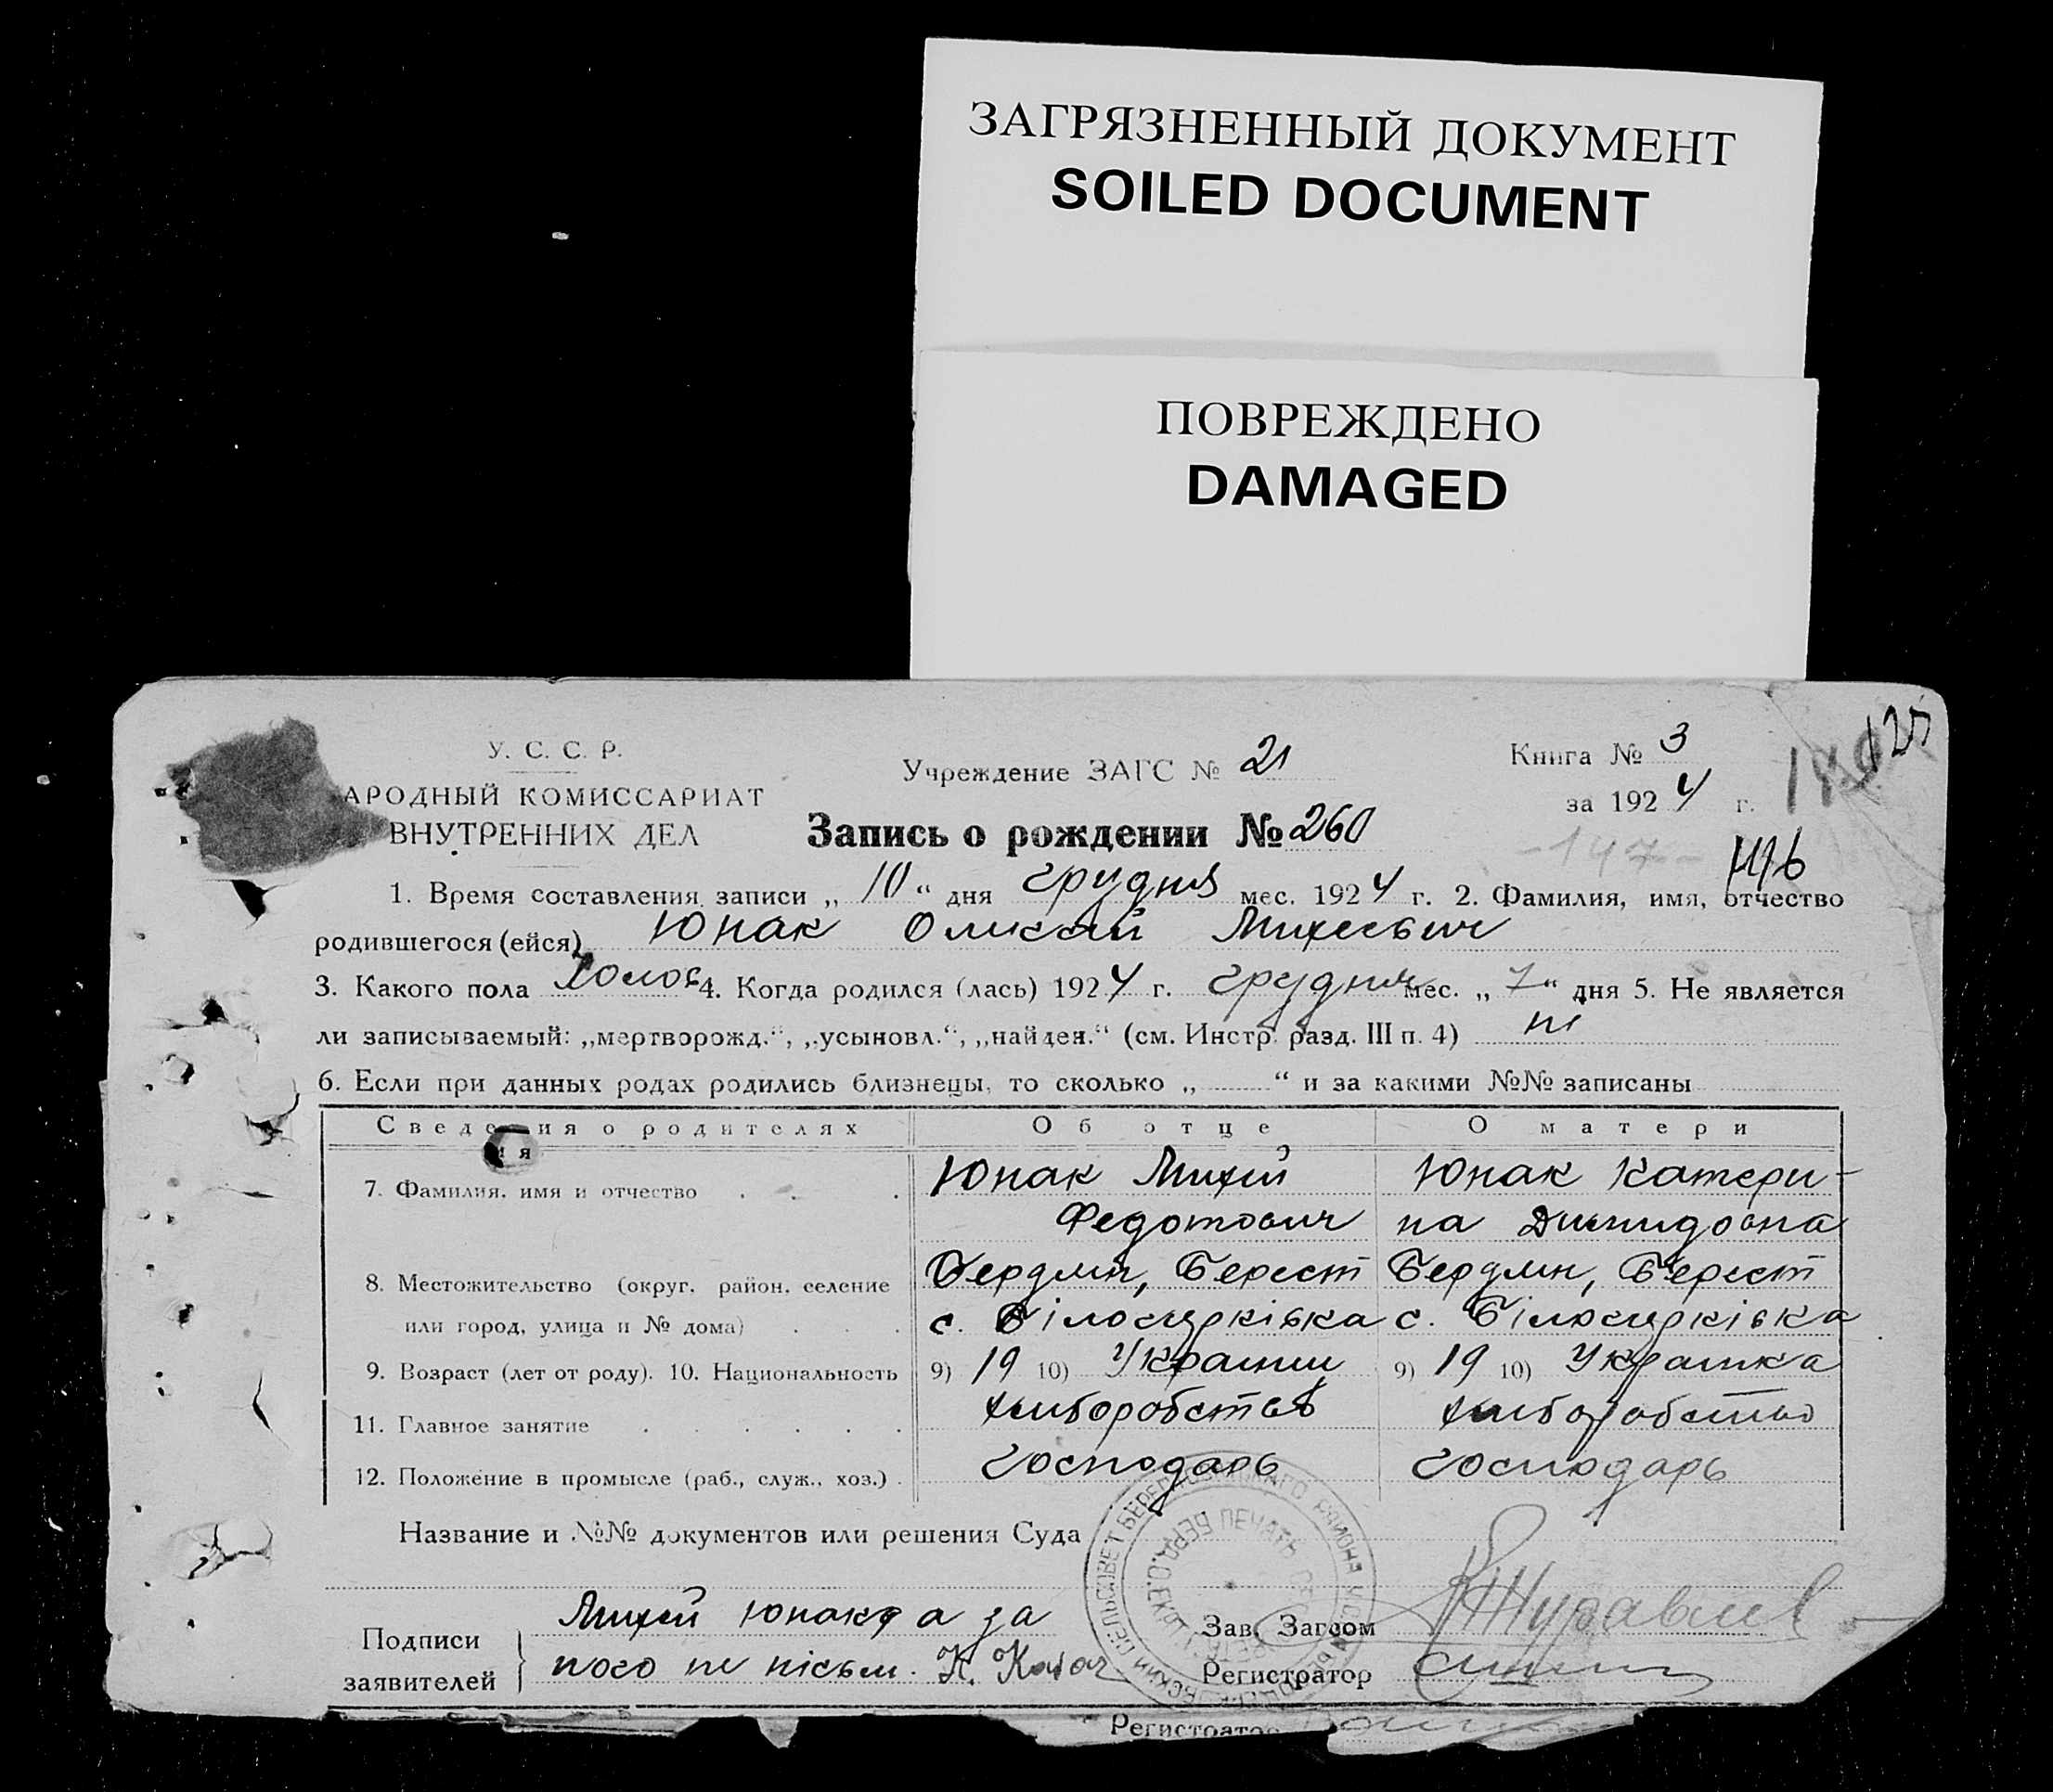 ЗАГРЯЗНЕННЫЙ ДОКУМЕНТ
SOILED DOCUMENT
ПОВРЕЖДЕНО
DAMAGED
125
У. С. С. Р.
АРОДНЫЙ КОМИССАРИАТ
ВНУТРЕННИХ ДЕЛ
Учреждение ЗАГС № 21
Книга № 3
за 1924 г.
Запись о рождении № 260
-147-
1. Время составления записи „10“ дня грудня мес. 1924 г. 2. Фамилия, имя, отчество
родившегося (ейся) Юнак Олисей Михеевич
3. Какого пола Холов 4. Когда родился (лась) 1924 г. грудня мес. „7“ дня 5. Не является
ли записываемый: „мертворожд.“, „усыновл.“, „найден.“ (см. Инстр. разд. III п. 4) ні
6. Если при данных родах родились близнецы, то сколько „ “ и за какими №№ записаны
Сведения о родителях Об отце О матери
7. Фамилия, имя и отчество Юнак Михей Юнак Катери-
Федотович на Демидовна
8. Местожительство (округ, район, селение Бердян, Берест Бердян, Берест
или город, улица и № дома) с. Білоцерківка с. Білоцерківка
9. Возраст (лет от роду). 10. Национальность 9) 19 10) Украинец 9) 19 10) Украинка
11. Главное занятие хлиборобство хлиборобство
12. Положение в промысле (раб., служ., хоз.) господарь господарь
Название и №№ документов или решения Суда
Подписи заявителей
Михей Юнак а за
його не письм. К.
Зав. Загсом Журавлев
Регистратор
Регистратор